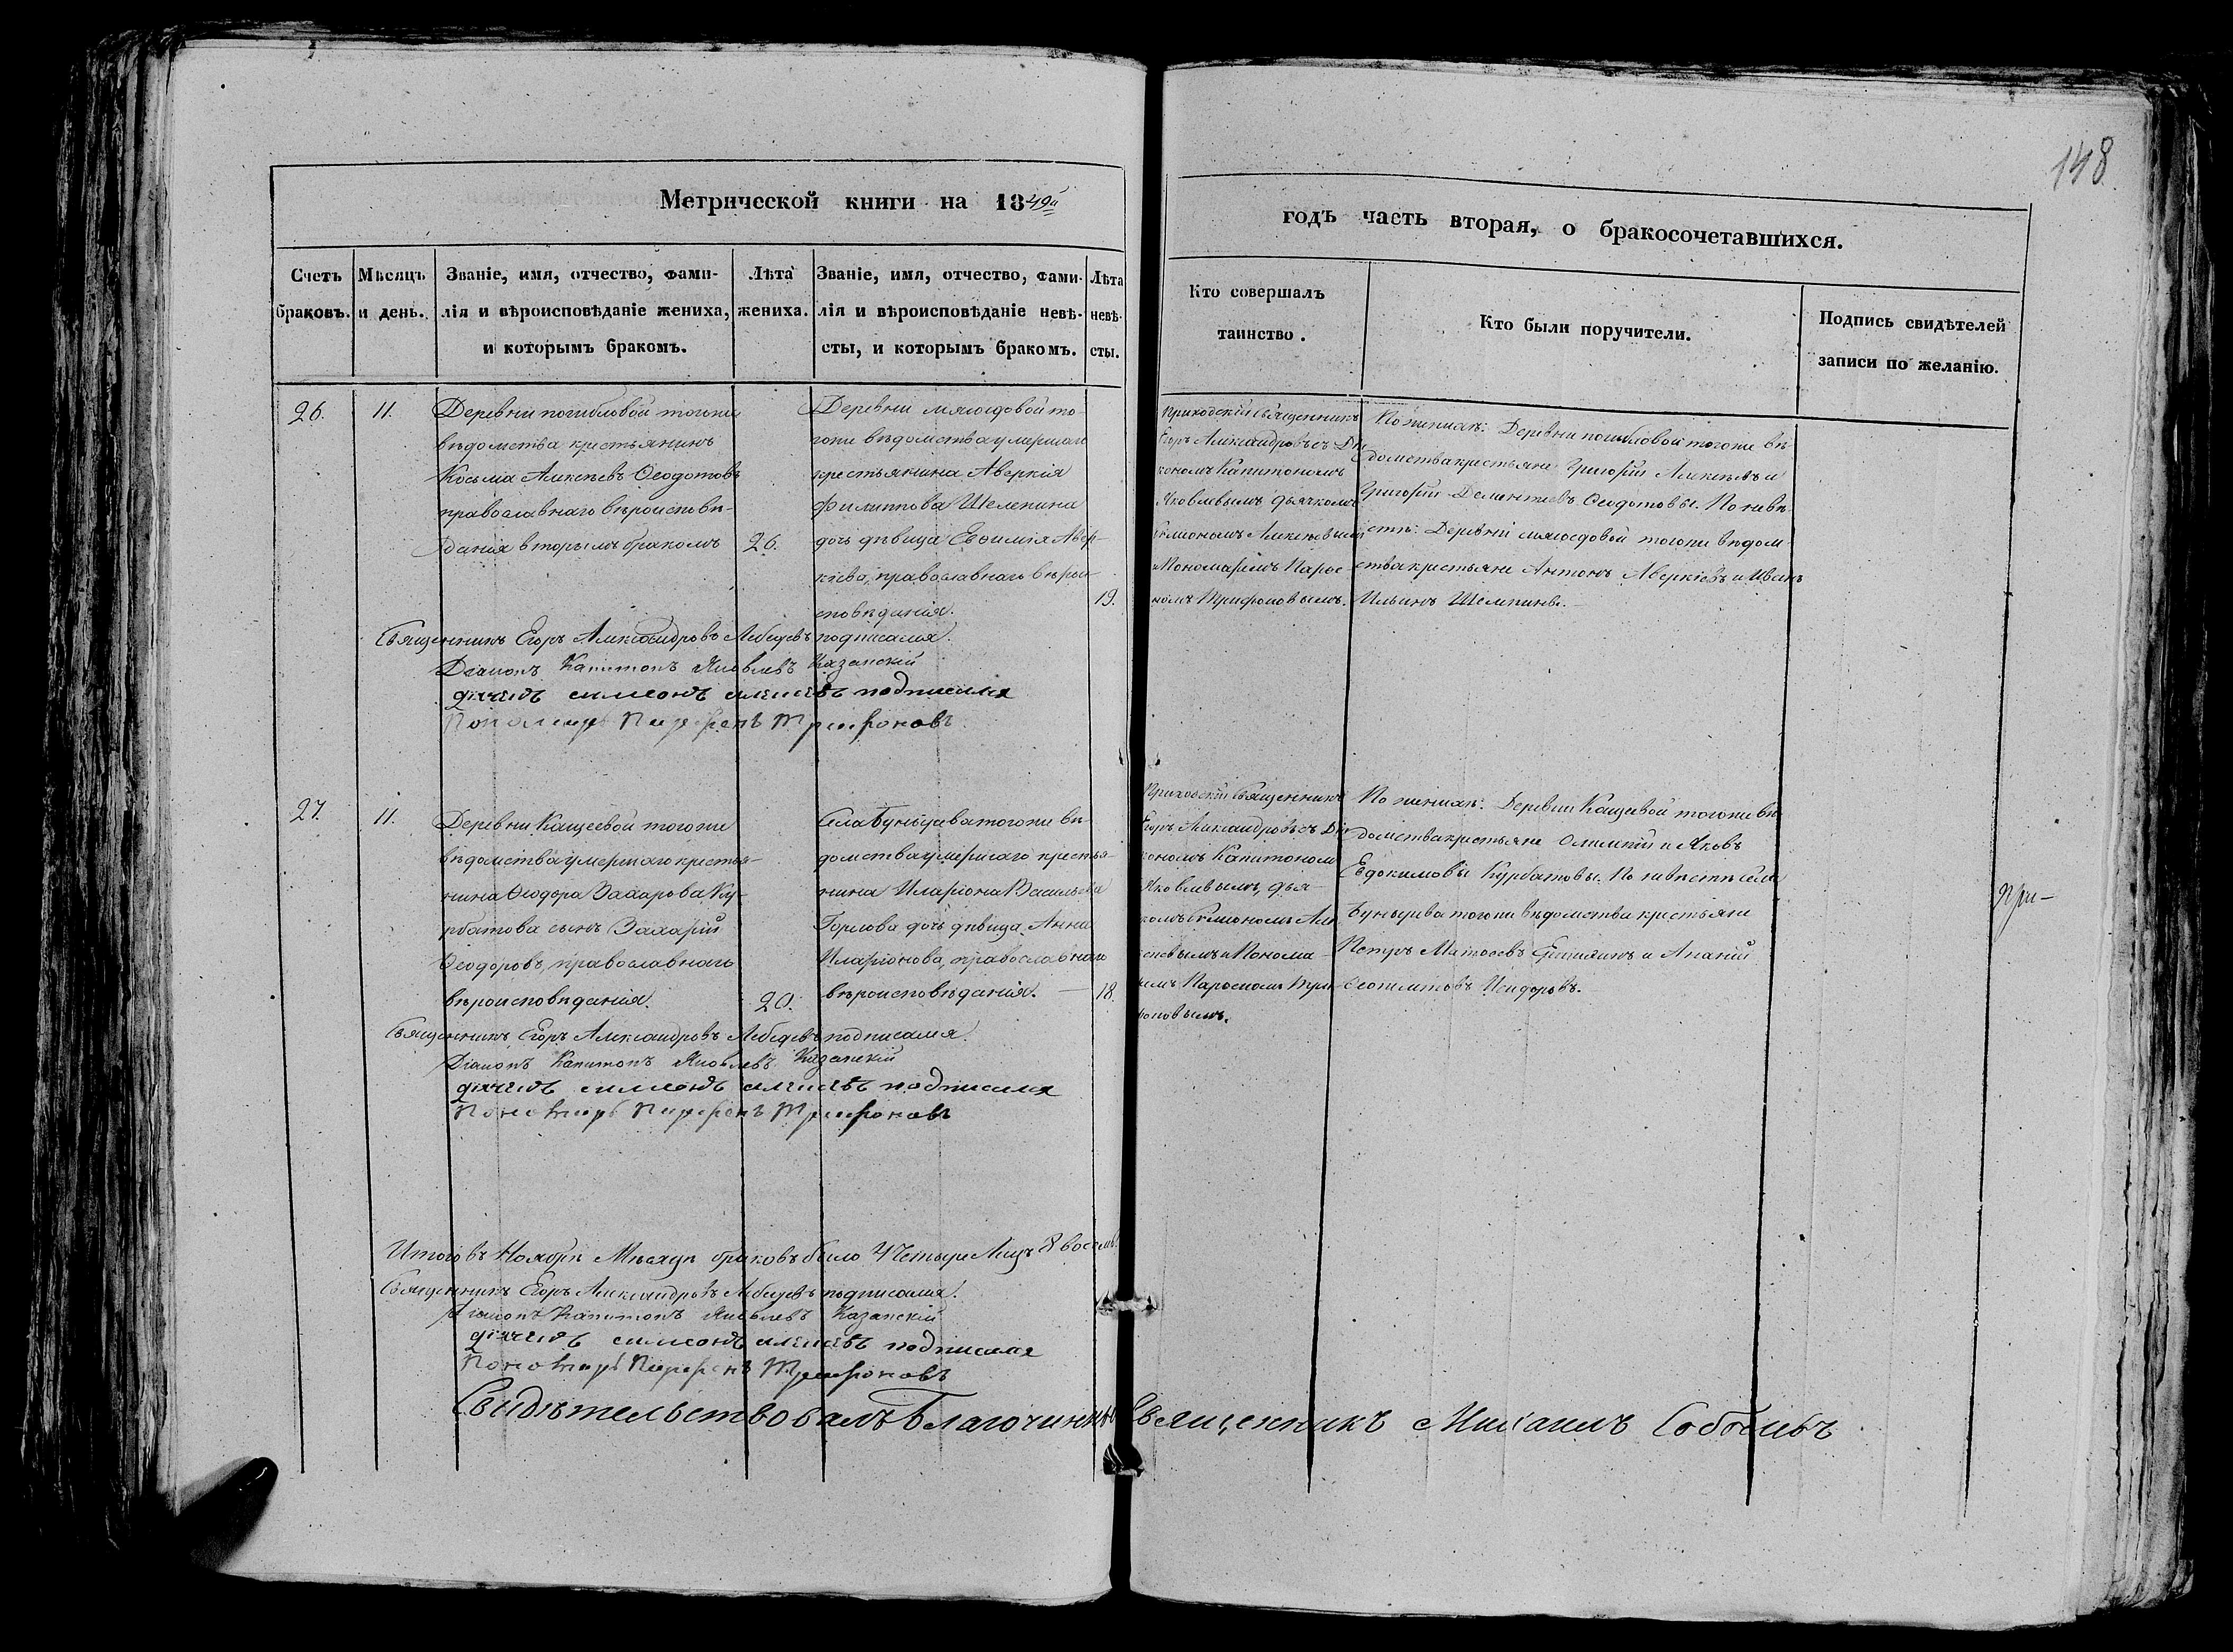 148
Метрической книги на 1849й
годъ часть вторая, о бракосочетавшихся.
Счетъ браковъ.
Мѣсяцъ и день.
Званіе, имя, отчество, фами-
лія и вѣроисповѣданіе жениха,
и которымъ бракомъ.
Лѣта жениха.
Званіе, имя, отчество, фами-
лія и вѣроисповѣданіе невѣ-
сты, и которымъ бракомъ.
Лѣта невѣ-
сты.
Кто совершалъ
таинство.
Кто были поручители.
Подпись свидѣтелей
записи по желанію.
26.
11.
Деревни погибловой тогоже
вѣдомства крестьянинъ
Косьма Алексѣевъ Ѳеодотовъ
православнаго вѣроисповѣ-
данія вторымъ бракомъ
26.
Деревни мясоедовой то-
гоже вѣдомства умершаго
крестьянина Аверкія
Филиппова Шелепина
дочь дѣвица Евѳимія Авер-
кіева, православнаго вѣрои-
сповѣданія.
19.
Приходскій священникъ
Егоръ Александровъ съ Діа
кономъ Капитономъ
Яковлевымъ дьячкомъ
Симеономъ Алексѣевымъ
и Пономаремъ Парѳе-
номъ Трифоновымъ.
По женихѣ: Деревни погибловой тогоже вѣ
домства крестьяне Григорій Алексѣевъ и
Григорій Дементьевъ Ѳеодотовы. По невѣ
стѣ: Деревни мясоедовой тогоже вѣдом-
ства крестьяне Антонъ Аверкіевъ и Иванъ
Ильинъ Шелепины.
Священникъ Егоръ Александровъ Лебедевъ подписался.
Діаконъ Капитонъ Яковлевъ Казанскій
дьячекъ симеонъ алексѣевъ подписался
Пономарь Парфенъ Трифоновъ
27.
11.
Деревни Кащеевой тогоже
вѣдомства умершаго крестья-
нина Ѳеодора Захарова Ку-
рбатова сынъ Захарій
Ѳеодоровъ, православнаго
вѣроисповѣданія.
20.
Села тогоже вѣ
домства умершаго крестья-
нина Иларіона Васильева
Горлова дочь дѣвица Анна
Иларіонова, православнаго
вѣроисповѣданія.
18.
Приходскій священникъ
Егоръ Александровъ съ Діа
кономъ Капитоном
Яковлевымъ, дья-
комъ Симеономъ Але
ксѣевымъ и Понома-
емъ Парѳеномъ Три
фоновымъ.
По женихѣ: Деревни Кащеевой тогоже вѣ
домства крестьяне Олимпій и Яковъ
Евдокимовы Курбатовы. По невѣстѣ села
тогоже вѣдомства крестьяне
Петръ Матвеевъ и Ананій
Ѳеопемптовъ Исидоровъ.
При-
Священникъ Егоръ Александровъ Лебедевъ подписался.
Діаконъ Капитонъ Яковлевъ Казанскій
дьячекъ симеонъ алексѣевъ подписался
Пономарь Парфенъ Трифоновъ
Итого въ Ноябрѣ Мѣсяцѣ браковъ было 4 Четыре Лицъ 8 восемь.
Священникъ Егоръ Александровъ Лебедевъ подписался.
Діаконъ Капитонъ Яковлевъ Казанскій
дьячекъ симеонъ алексѣевъ подписался
Пономарь Парфенъ Трифоновъ
Свидѣтельствовалъ Благочинный Священникъ Михаилъ Соболевъ